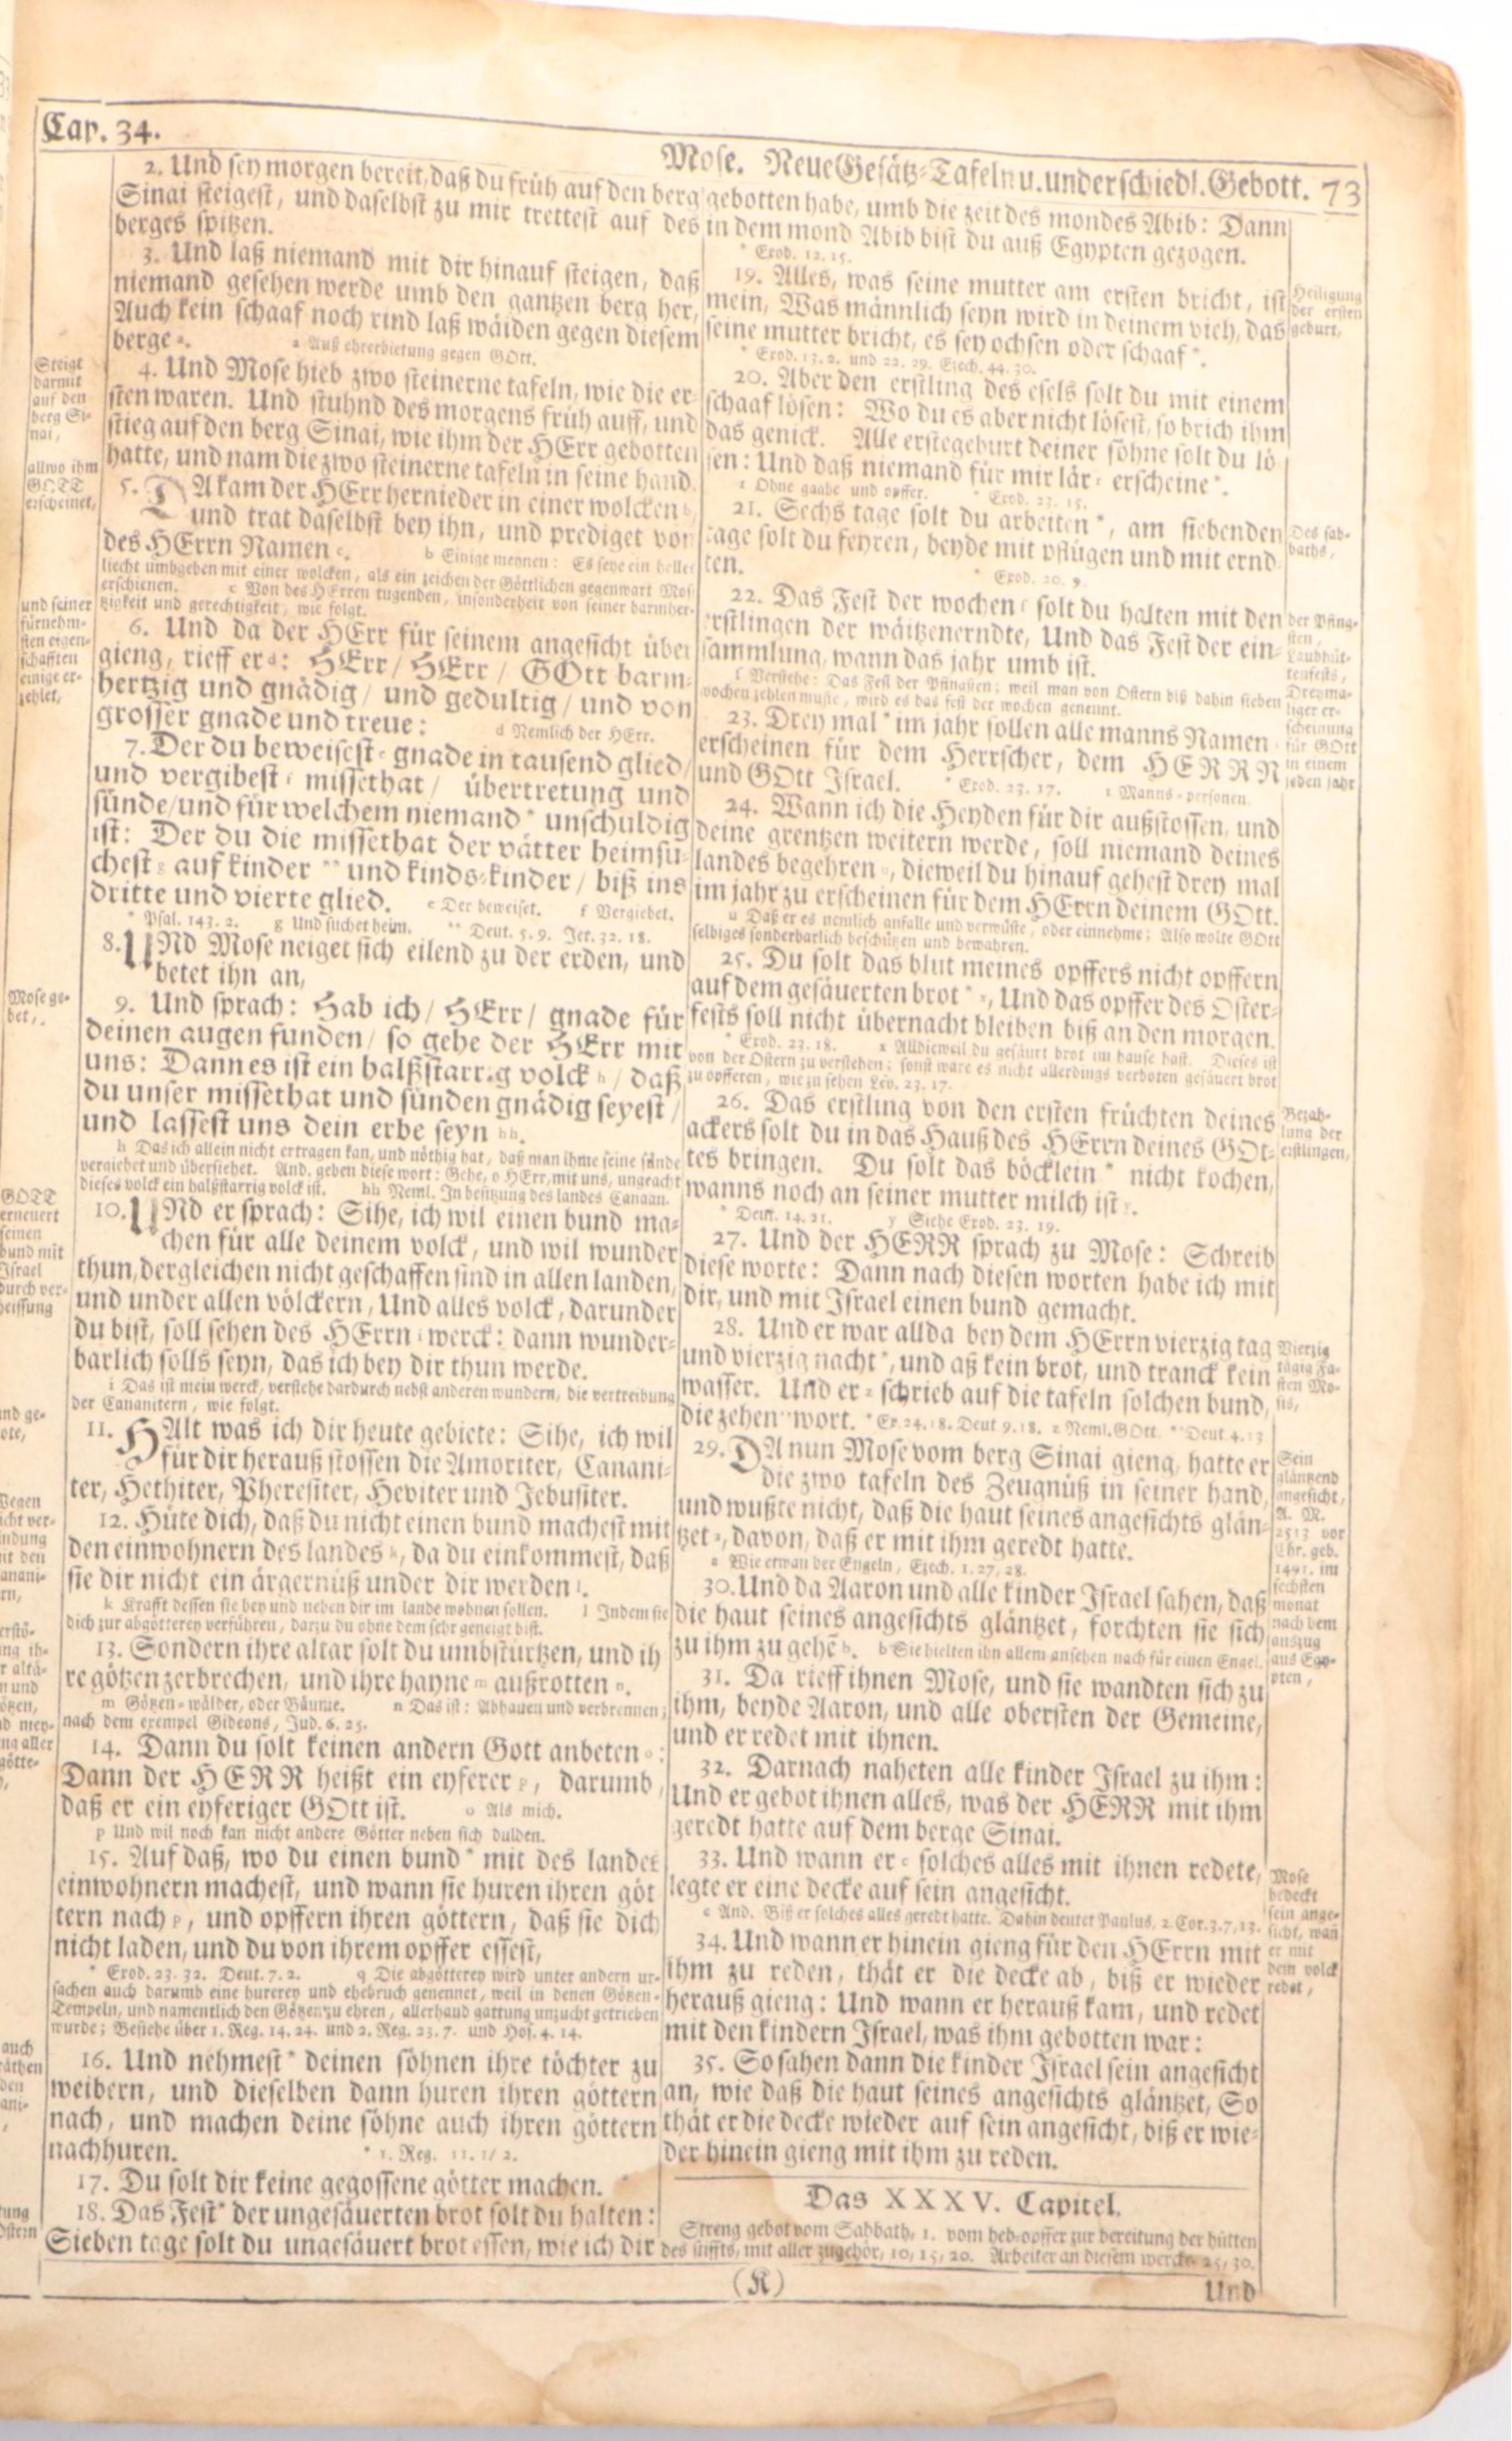 Cap. 34.
Mose. Neue Gesätz-Tafeln u. underschiedl. Gebott. 73
2. Und sey morgen bereit, daß du früh auf den berg
Sinai steigest, und daselbst zu mir trettest auf des
berges spitzen.
3. Und laß niemand mit dir hinauf steigen, daß
niemand gesehen werde umb den gantzen berg her,
Auch kein schaaf noch rind laß wäiden gegen diesem
berge a.
a Auß ehrerbietung gegen GOtt.
4. Und Mose hieb zwo steinerne tafeln, wie die er-
sten waren. Und stuhnd des morgens früh auff, und
stieg auf den berg Sinai, wie ihm der HErr gebotten
hatte, und nam die zwo steinerne tafeln in seine hand.
5. DA kam der HErr hernieder in einer wolcken b,
und trat daselbst bey ihn, und prediget von
des HErrn Namen c.
b Einige meynen: Es seye ein helles
liecht umbgeben mit einer wolcken, als ein zeichen der Göttlichen gegenwart Mosi
erschienen. c Von des HErren tugenden, insonderheit von seiner barmher-
tzigkeit und gerechtigkeit, wie folgt.
6. Und da der HErr für seinem angesicht über
gieng, rieff er d: HErr / HErr / GOtt barm-
hertzig und gnädig / und gedultig / und von
grosser gnade und treue:
d Nemlich der HErr.
7. Der du beweisest e gnade in tausend glied /
und vergibest f missethat / übertretung und
sünde / und für welchem niemand * unschuldig
ist: Der du die missethat der vätter heimsu-
chest g auf kinder ** und kinds-kinder / biß ins
dritte und vierte glied. e Der beweiset. f Vergiebet.
* Psal. 143. 2. g Und suchet heim. ** Deut. 5. 9. Jer. 32. 18.
8. UNd Mose neiget sich eilend zu der erden, und
betet ihn an,
9. Und sprach: Hab ich / HErr / gnade für
deinen augen funden / so gehe der HErr mit
uns: Dann es ist ein halßstarrig volck h / daß
du unser missethat und sünden gnädig seyest /
und lassest uns dein erbe seyn hh.
h Das ich allein nicht ertragen kan, und nöthig hat, daß man ihme seine sünde
vergiebet und übersiehet. And. geben diese wort: Gehe, o HErr, mit uns, ungeacht
dieses volck ein halßstarrig volck ist. hh Neml. In besitzung des landes Canaan.
10. UNd er sprach: Sihe, ich wil einen bund ma-
chen für alle deinem volck, und wil wunder
thun, dergleichen nicht geschaffen sind in allen landen,
und under allen völckern, Und alles volck, darunder
du bist, soll sehen des HErrn i werck: dann wunder-
barlich solls seyn, das ich bey dir thun werde.
i Das ist mein werck, verstehe dardurch nebst anderen wundern, die vertreibung
der Cananitern, wie folgt.
11. HAlt was ich dir heute gebiete: Sihe, ich wil
für dir herauß stossen die Amoriter, Canani-
ter, Hethiter, Pheresiter, Heviter und Jebusiter.
12. Hüte dich, daß du nicht einen bund machest mit
den einwohnern des landes k, da du einkommest, daß
sie dir nicht ein ärgernüß under dir werden l.
k Krafft dessen sie bey und neben dir im lande wohnen sollen. l Indem sie
dich zur abgötterey verführen, darzu du ohne dem sehr geneigt bist.
13. Sondern ihre altar solt du umbstürtzen, und ih
re götzen zerbrechen, und ihre hayne m außrotten n.
m Götzen-wälder, oder Bäume. n Das ist: Abhauen und verbrennen;
nach dem exempel Gideons, Jud. 6. 25.
14. Dann du solt keinen andern Gott anbeten o:
Dann der HERR heißt ein eyferer p, darumb,
daß er ein eyferiger GOtt ist. o Als mich.
p Und wil noch kan nicht andere Götter neben sich dulden.
15. Auf daß, wo du einen bund * mit des landes
einwohnern machest, und wann sie huren ihren göt
tern nach p, und opffern ihren göttern, daß sie dich
nicht laden, und du von ihrem opffer essest,
* Exod. 23. 32. Deut. 7. 2. q Die abgötterey wird unter andern ur-
sachen auch darumb eine hurerey und ehebruch genennet, weil in denen Götzen-
Tempeln, und namentlich den Götzen zu ehren, allerhand gattung unzucht getrieben
wurde; Besiehe über 1. Reg. 14. 24. und 2. Reg. 23. 7. und Hos. 4. 14.
16. Und nehmest * deinen söhnen ihre töchter zu
weibern, und dieselben dann huren ihren göttern
nach, und machen deine söhne auch ihren göttern
nachhuren.
* 1. Reg. 11. 1/2.
17. Du solt dir keine gegossene götter machen.
18. Das Fest * der ungesäuerten brot solt du halten:
Sieben tage solt du ungesäuert brot essen, wie ich dir
gebotten habe, umb die zeit des mondes Abib: Dann
in dem mond Abib bist du auß Egypten gezogen.
* Exod. 12. 15.
19. Alles, was seine mutter am ersten bricht, ist
mein, Was männlich seyn wird in deinem vieh, das
seine mutter bricht, es sey ochsen oder schaaf *.
* Exod. 13. 2. und 22. 29. Ezech. 44. 30.
20. Aber den erstling des esels solt du mit einem
schaaf lösen: Wo du es aber nicht lösest, so brich ihm
das genick. Alle erstegeburt deiner söhne solt du lö
sen: Und daß niemand für mir lär r erscheine *.
r Ohne gaabe und opffer. * Exod. 23. 15.
21. Sechs tage solt du arbeiten *, am siebenden
tage solt du feyren, beyde mit pflügen und mit ernd
ten.
* Exod. 20. 9.
22. Das Fest der wochen s solt du halten mit den
erstlingen der wäitzenerndte, Und das Fest der ein-
sammlung, wann das jahr umb ist.
s Verstehe: Das Fest der Pfingsten; weil man von Ostern biß dahin sieben
wochen zehlen muste, wird es das fest der wochen genennt.
23. Drey mal * im jahr sollen alle manns Namen t
erscheinen für dem Herrscher, dem HERRN
und GOtt Israel. * Exod. 23. 17. t Manns-personen.
24. Wann ich die Heyden für dir außstossen, und
deine grentzen weitern werde, soll niemand deines
landes begehren u, dieweil du hinauf gehest drey mal
im jahr zu erscheinen für dem HErrn deinem GOtt.
u Daß er es nemlich anfalle und verwüste, oder einnehme; Also wolte GOtt
selbiges sonderbarlich beschützen und bewahren.
25. Du solt das blut meines opffers nicht opffern
auf dem gesäuerten brot * x, Und das opffer des Oster-
fests soll nicht übernacht bleiben biß an den morgen.
* Exod. 23. 18. x Alldieweil du gesäurt brot im hause hast. Dieses ist
von der Ostern zu verstehen; sonst ware es nicht allerdings verboten gesäuert brot
zu opfferen, wie zu sehen Lev. 23. 17.
26. Das erstling von den ersten früchten deines
ackers solt du in das Hauß des HErrn deines GOt-
tes bringen. Du solt das böcklein * nicht kochen,
wanns noch an seiner mutter milch ist y.
* Deut. 14. 21. y Siehe Exod. 23. 19.
27. Und der HERR sprach zu Mose: Schreib
diese worte: Dann nach diesen worten habe ich mit
dir, und mit Israel einen bund gemacht.
28. Und er war allda bey dem HErrn vierzig tag
und vierzig nacht *, und aß kein brot, und tranck kein
wasser. Und er z schrieb auf die tafeln solchen bund,
die zehen ** wort. * Ex. 24. 18. Deut 9. 18. z Neml. GOtt. ** Deut. 4. 13
29. DA nun Mose vom berg Sinai gieng, hatte er
die zwo tafeln des Zeugnüß in seiner hand,
und wußte nicht, daß die haut seines angesichts glän-
tzet a, davon, daß er mit ihm geredt hatte.
a Wie etwan der Engeln, Ezech. 1. 27, 28.
30. Und da Aaron und alle kinder Israel sahen, daß
die haut seines angesichts gläntzet, forchten sie sich
zu ihm zu gehē b. b Sie hielten ihn allem ansehen nach für einen Engel.
31. Da rieff ihnen Mose, und sie wandten sich zu
ihm, beyde Aaron, und alle obersten der Gemeine,
und er redet mit ihnen.
32. Darnach naheten alle kinder Israel zu ihm:
Und er gebot ihnen alles, was der HERR mit ihm
geredt hatte auf dem berge Sinai.
33. Und wann er c solches alles mit ihnen redete,
legte er eine decke auf sein angesicht.
c And. Biß er solches alles geredt hatte. Dahin deutet Paulus, 2. Cor. 3. 7, 13.
34. Und wann er hinein gieng für den HErrn mit
ihm zu reden, thät er die decke ab, biß er wieder
herauß gieng: Und wann er herauß kam, und redet
mit den kindern Israel, was ihm gebotten war:
35. So sahen dann die kinder Israel sein angesicht
an, wie daß die haut seines angesichts gläntzet, So
thät er die decke wieder auf sein angesicht, biß er wie-
der hinein gieng mit ihm zu reden.
Das XXXV. Capitel.
Streng gebot vom Sabbath, 1. vom heb-opffer zur bereitung der hütten
des stiffts, mit aller zugehör, 10, 15, 20. Arbeiter an diesem werck, 25, 30.
(K)
Und
Steigt
darmit
auf den
berg Si-
nai,
allwo ihm
GOTT
erscheinet,
und seiner
fürnehm-
sten eigen-
schafften
einige er-
zehlet,
Mose ge-
bet,
GOTT
erneuert
seinen
bund mit
Israel
durch ver-
heissung
Heiligung
der ersten
geburt,
Des sab-
baths,
der Pfing-
sten,
Laubhüt-
tenfests,
Dreyma-
liger er-
scheinung
für GOtt
in einem
jeden jahr
Bezah-
lung der
erstlingen,
Vierzig
tägig Fa-
sten Mo-
sis,
Sein
gläntzend
angesicht,
A. M.
2513 vor
Chr. geb.
1491. im
sechsten
monat
nach dem
auszug
aus Egy-
pten,
Mose
bedeckt
sein ange-
sicht, wañ
er mit
dem volck
redet,